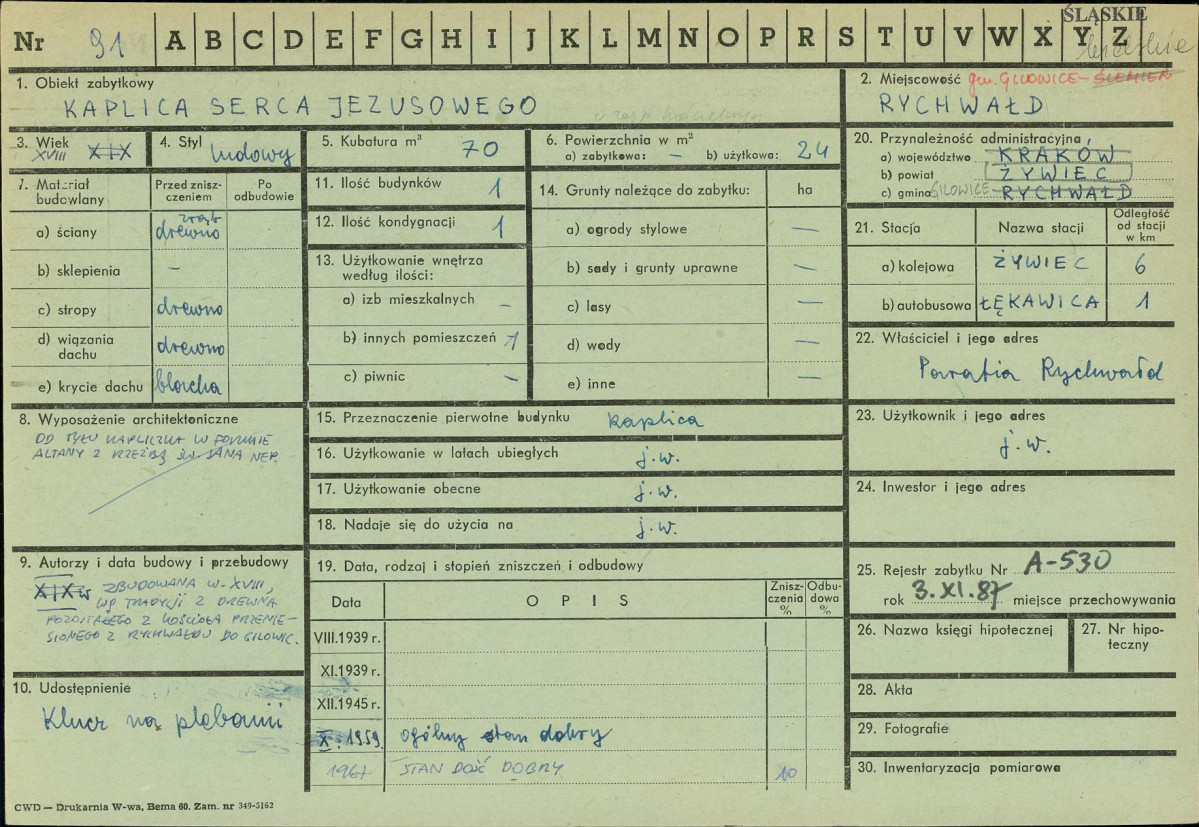 ŚLĄSKIE
Nr 91 A B C D E F G H I J K L M N O P R S T U V W X Y Z
1. Obiekt zabytkowy
KAPLICA SERCA JEZUSOWEGO
2. Miejscowość gm. GILOWICE-ŚLEMIEŃ
RYCHWAŁD
3. Wiek
XVIII XIX
4. Styl ludowy
5. Kubatura m³ 70
6. Powierzchnia w m²
a) zabytkowa: — b) użytkowa: 24
20. Przynależność administracyjna
a) województwo KRAKÓW
b) powiat ŻYWIEC
c) gmina GILOWICE- RYCHWAŁD
7. Materiał budowlany
Przed zniszczeniem
Po odbudowie
a) ściany zrąb drewno
b) sklepienia —
c) stropy drewno
d) wiązania dachu drewno
e) krycie dachu blacha
11. Ilość budynków 1
12. Ilość kondygnacji 1
13. Użytkowanie wnętrza
według ilości:
a) izb mieszkalnych —
b) innych pomieszczeń 1
c) piwnic —
14. Grunty należące do zabytku: ha
a) ogrody stylowe —
b) sady i grunty uprawne —
c) lasy —
d) wody —
e) inne —
21. Stacja Nazwa stacji Odległość od stacji w km
a) kolejowa ŻYWIEC 6
b) autobusowa ŁĘKAWICA 1
22. Właściciel i jego adres
Parafia Rychwałd
8. Wyposażenie architektoniczne
OD TYŁU KAPLICZKA W FORMIE
ALTANY Z RZEŹBĄ ŚW. JANA NEP.
15. Przeznaczenie pierwotne budynku kaplica
16. Użytkowanie w latach ubiegłych j.w.
17. Użytkowanie obecne j.w.
18. Nadaje się do użycia na j.w.
23. Użytkownik i jego adres
j.w.
24. Inwestor i jego adres
9. Autorzy i data budowy i przebudowy
XIX w ZBUDOWANA W. XVIII,
WG TRADYCJI Z DREWNA
POZOSTAŁEGO Z KOŚCIOŁA PRZENIE-
SIONEGO Z RYCHWAŁDU DO GILOWIC.
10. Udostępnienie
Klucz na plebanii
19. Data, rodzaj i stopień zniszczeń i odbudowy
Data OPIS Zniszczenia % Odbudowa %
VIII.1939 r.
XI.1939 r.
XII.1945 r.
X. 1959. ogólny stan dobry
1967 STAN DOŚĆ DOBRY 10
25. Rejestr zabytku Nr A-530
rok 3.XI.87 miejsce przechowywania
26. Nazwa księgi hipotecznej
27. Nr hipoteczny
28. Akta
29. Fotografie
30. Inwentaryzacja pomiarowa
CWD — Drukarnia W-wa, Bema 60. Zam. nr 349-5162